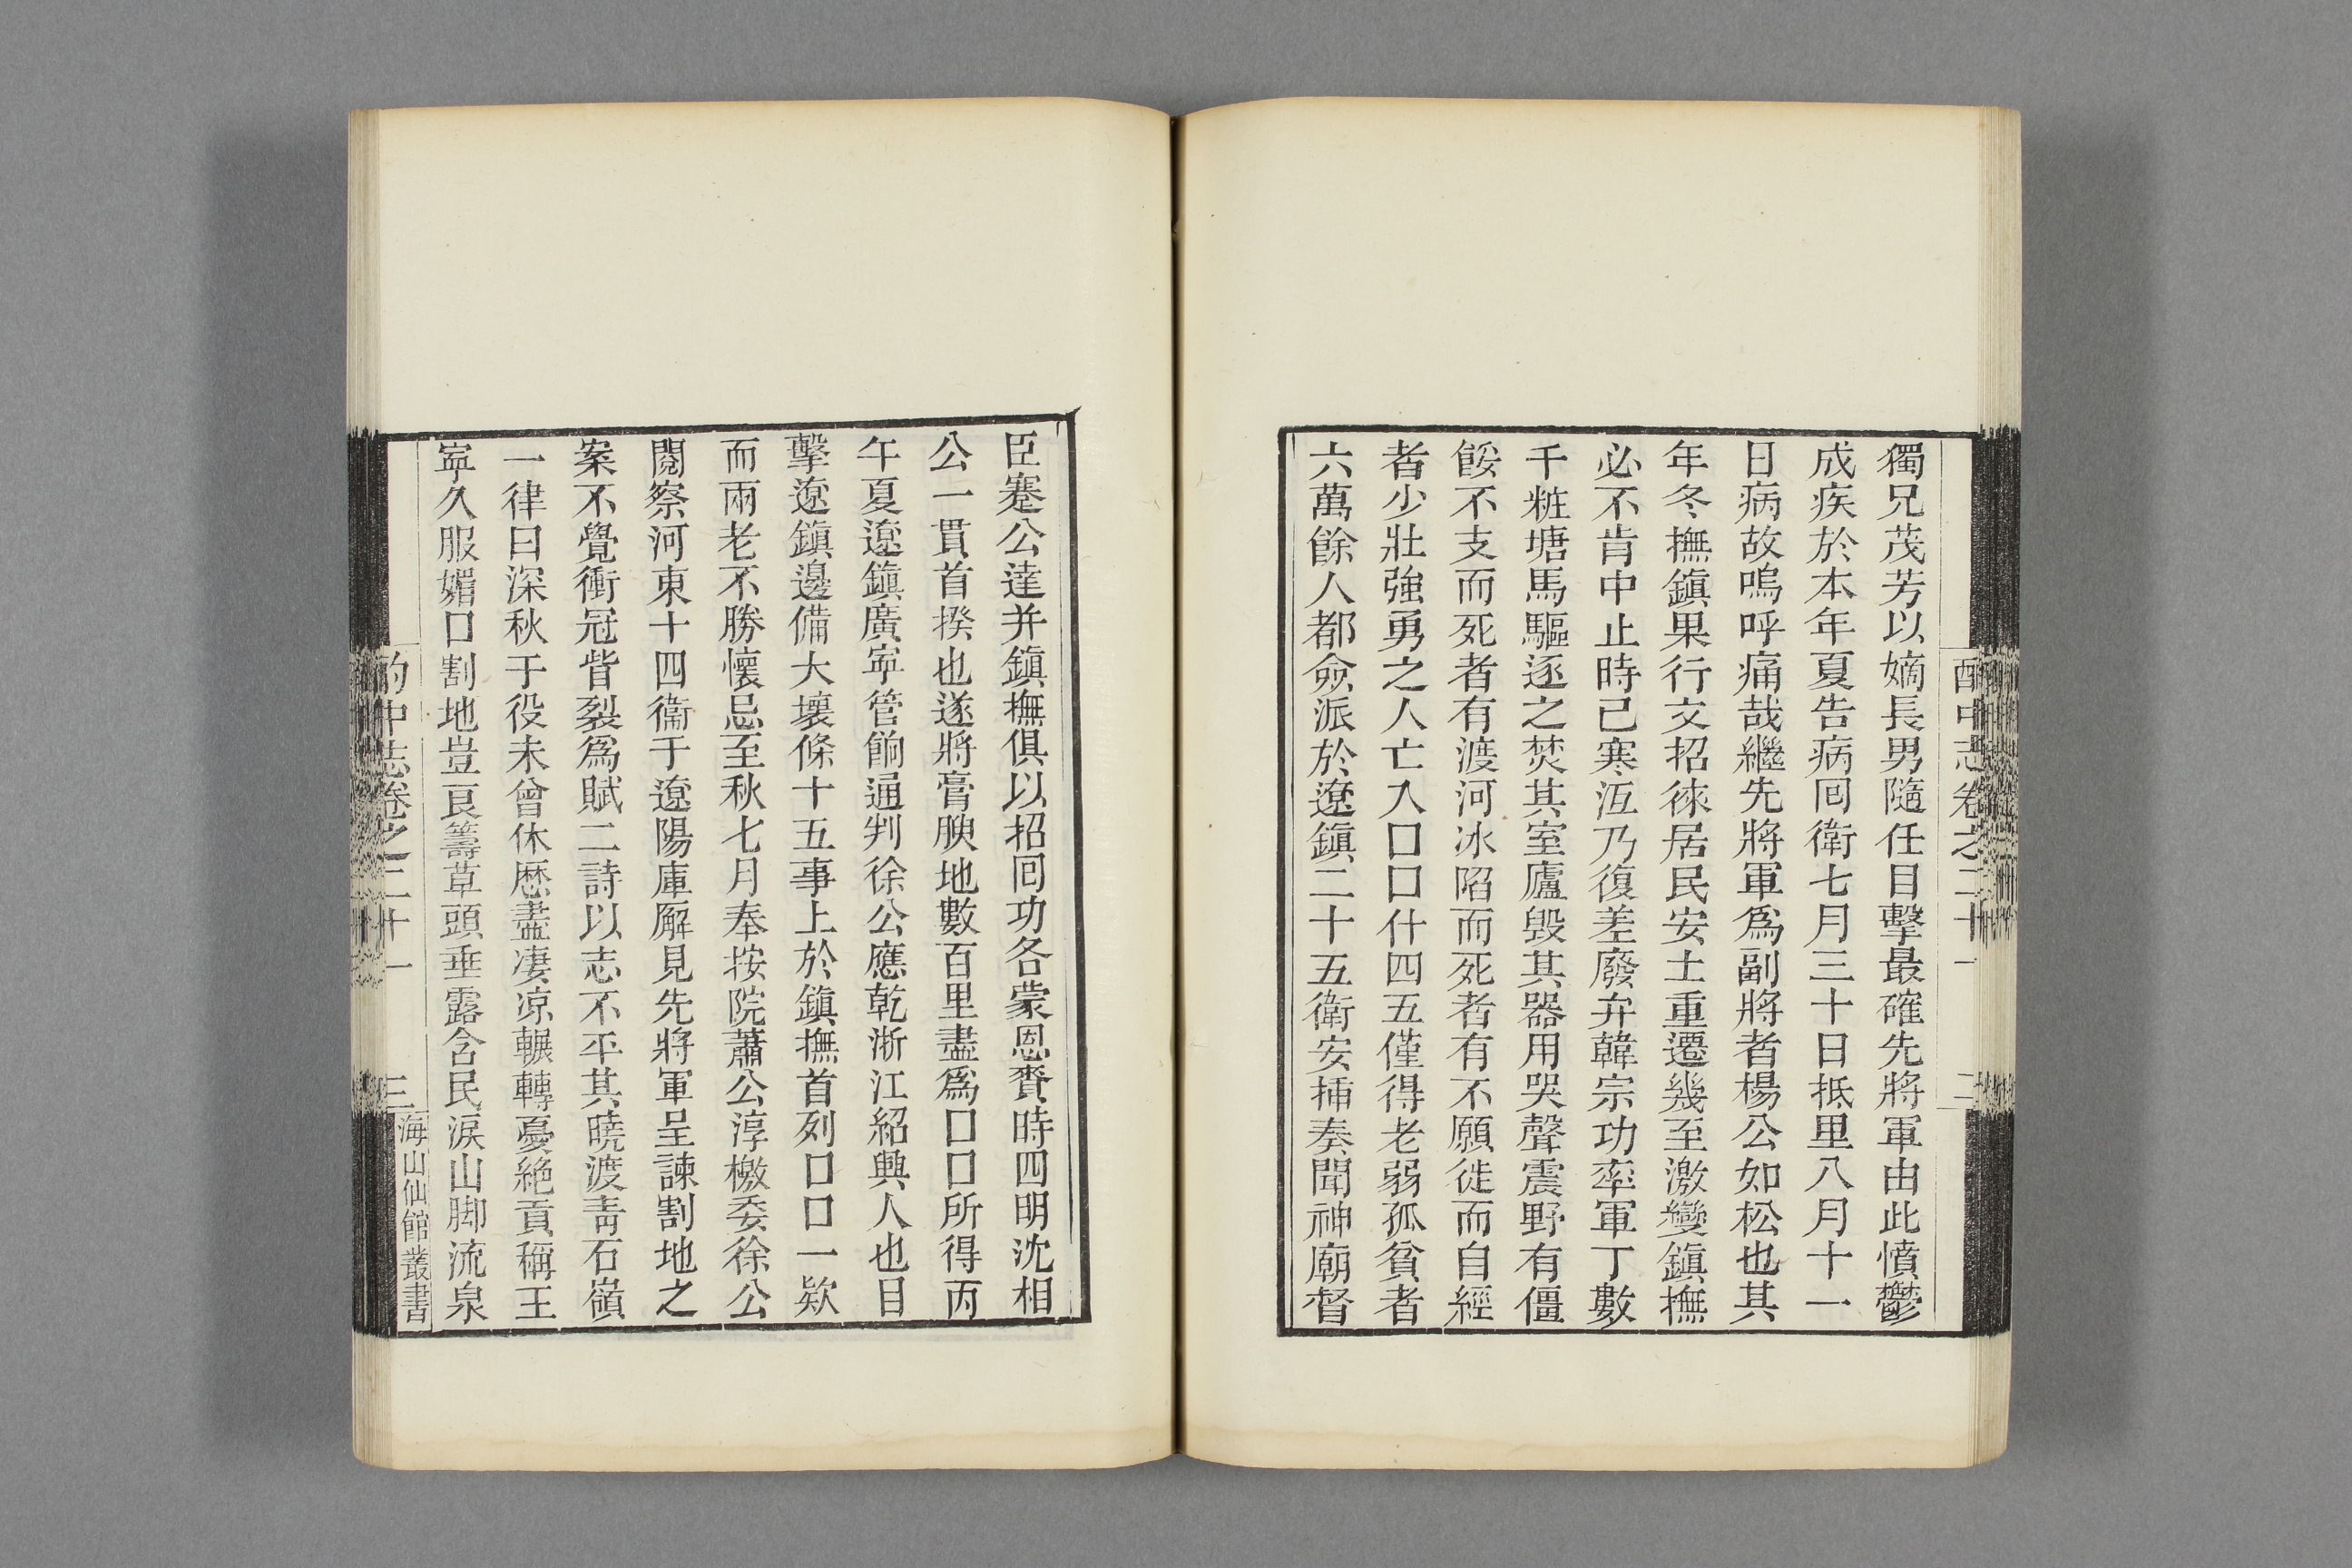 酌中志卷之二十一 二
獨兄茂芳以嫡長男隨任目擊最確先將軍由此憤鬱
成疾於本年夏告病囘衛七月三十日抵里八月十一
日病故嗚呼痛哉繼先將軍爲副將者楊公如松也其
年冬撫鎭果行文招徠居民安土重遷幾至激變鎭撫
必不肯中止時已寒沍乃復差廢弁韓宗功率軍丁數
千粧塘馬驅逐之焚其室廬毁其器用哭聲震野有僵
餒不支而死者有渡河冰陷而死者有不願徙而自經
者少壯強勇之人亡入口口什四五僅得老弱孤貧者
六萬餘人都僉派於遼鎭二十五衛安揷奏聞神廟督
臣蹇公達并鎭撫俱以招囘功各蒙恩賚時四明沈相
公一貫首揆也遂將膏腴地數百里盡爲口口所得丙
午夏遼鎭廣寍管餉通判徐公應乾浙江紹興人也目
擊遼鎭邊備大壞條十五事上於鎭撫首列口口一欵
而兩老不勝懷忌至秋七月奉按院蕭公淳檄委徐公
閱察河東十四衞于遼陽庫廨見先將軍呈諫割地之
案不覺衝冠眥裂爲賦二詩以志不平其曉渡靑石嶺
一律曰深秋于役未曾休歷盡凄凉輾轉憂絶貢稱王
寍久服媚口割地豈良籌草頭垂露含民淚山脚流泉
酌中志卷之二十一 三 海山仙館叢書